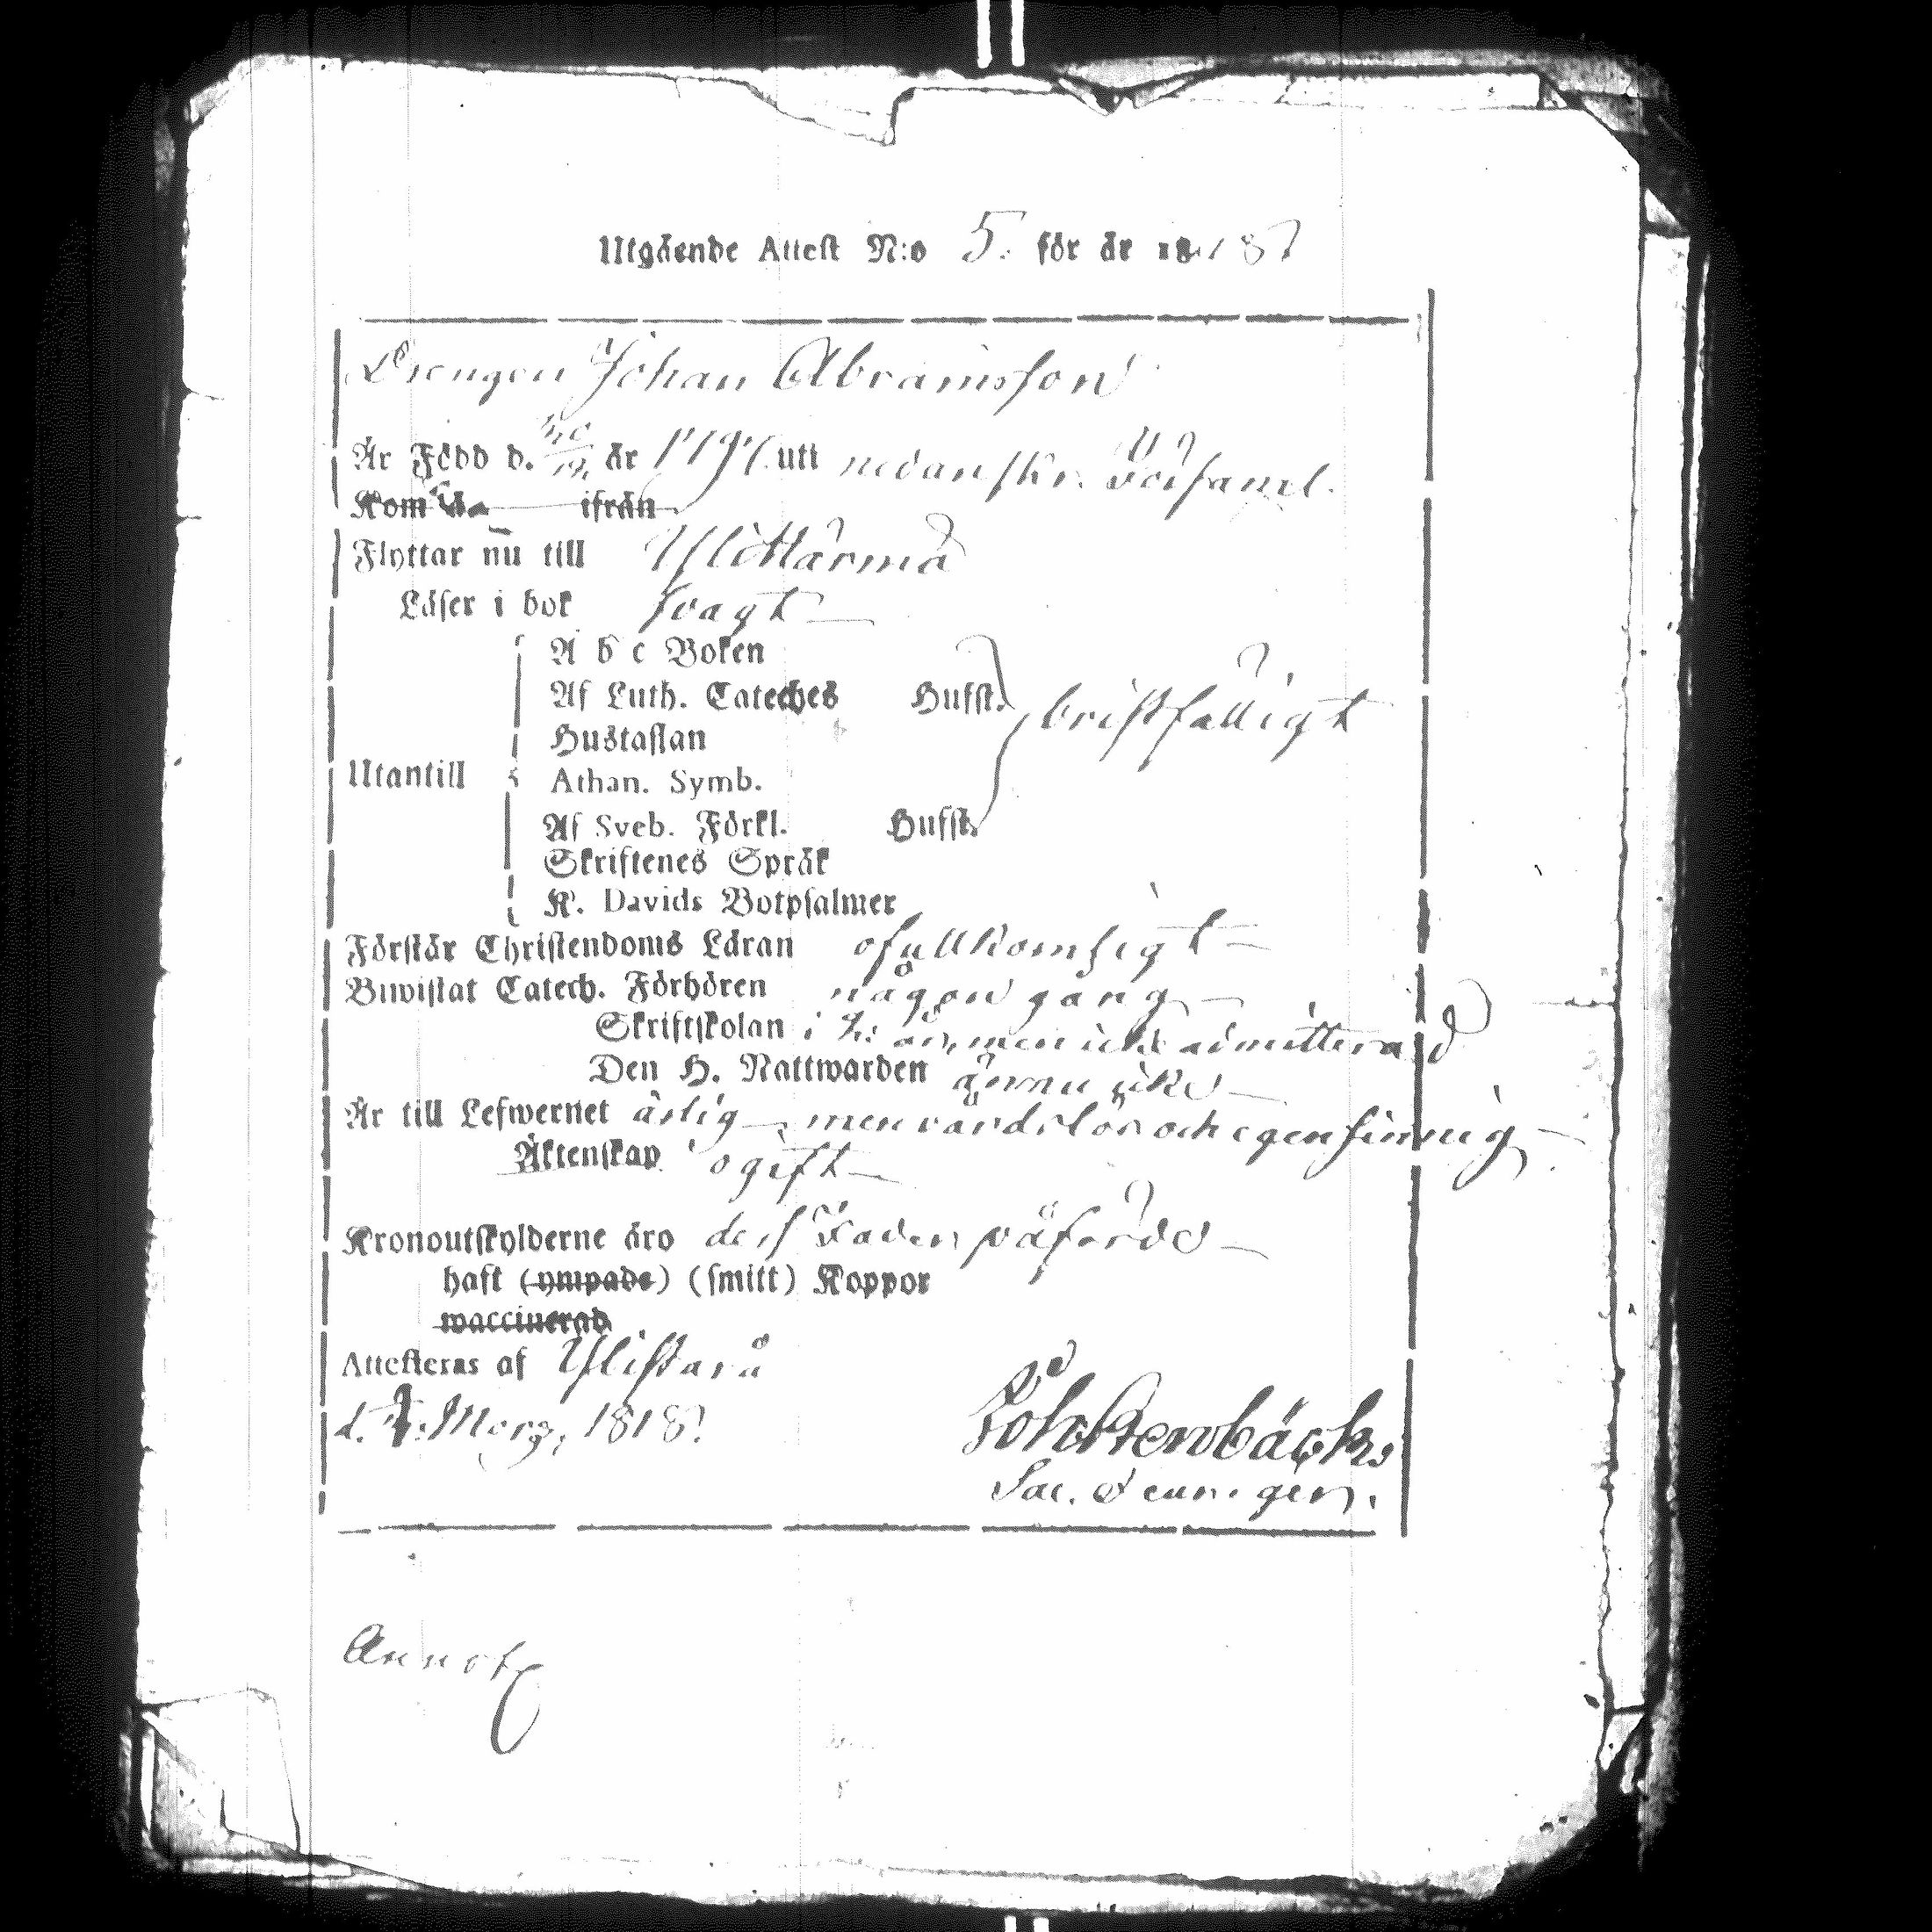 Utgående Attest N:o 5. för år 1818
Drengen Johan Abramsson
Är Född d. år utt nedanskr. Församl.
Kom ifrån
Flyttar nu till Ylihärmä
Läser i bok svagt
A b c Boken
Af Luth. Cateches Hufst.
bristfälligt
Hustaflan
Utantill
Athan. Symb.
Af Sveb. Förkl. Hufst.
Skriftenes Språk
K. Davids Botpsalmer
Förstår Christendoms Läran ofullkomligt
Biwistat Catech. Förhören någon gång
Skriftskolan i år, men icke admitterad
Den H. Nattwarden ännu icke
Är till Lefwernet ärlig, men vårdslös och egensinnig
Äktenskap ogift
Kronoutskylderne äro dess Fader påförde
haft (ympade) (smitt) Koppor
waccinerad
Attesteras af Ylistaro
d. Marz, 1818.
Joh. Stenbäck,
Sac.
Annot